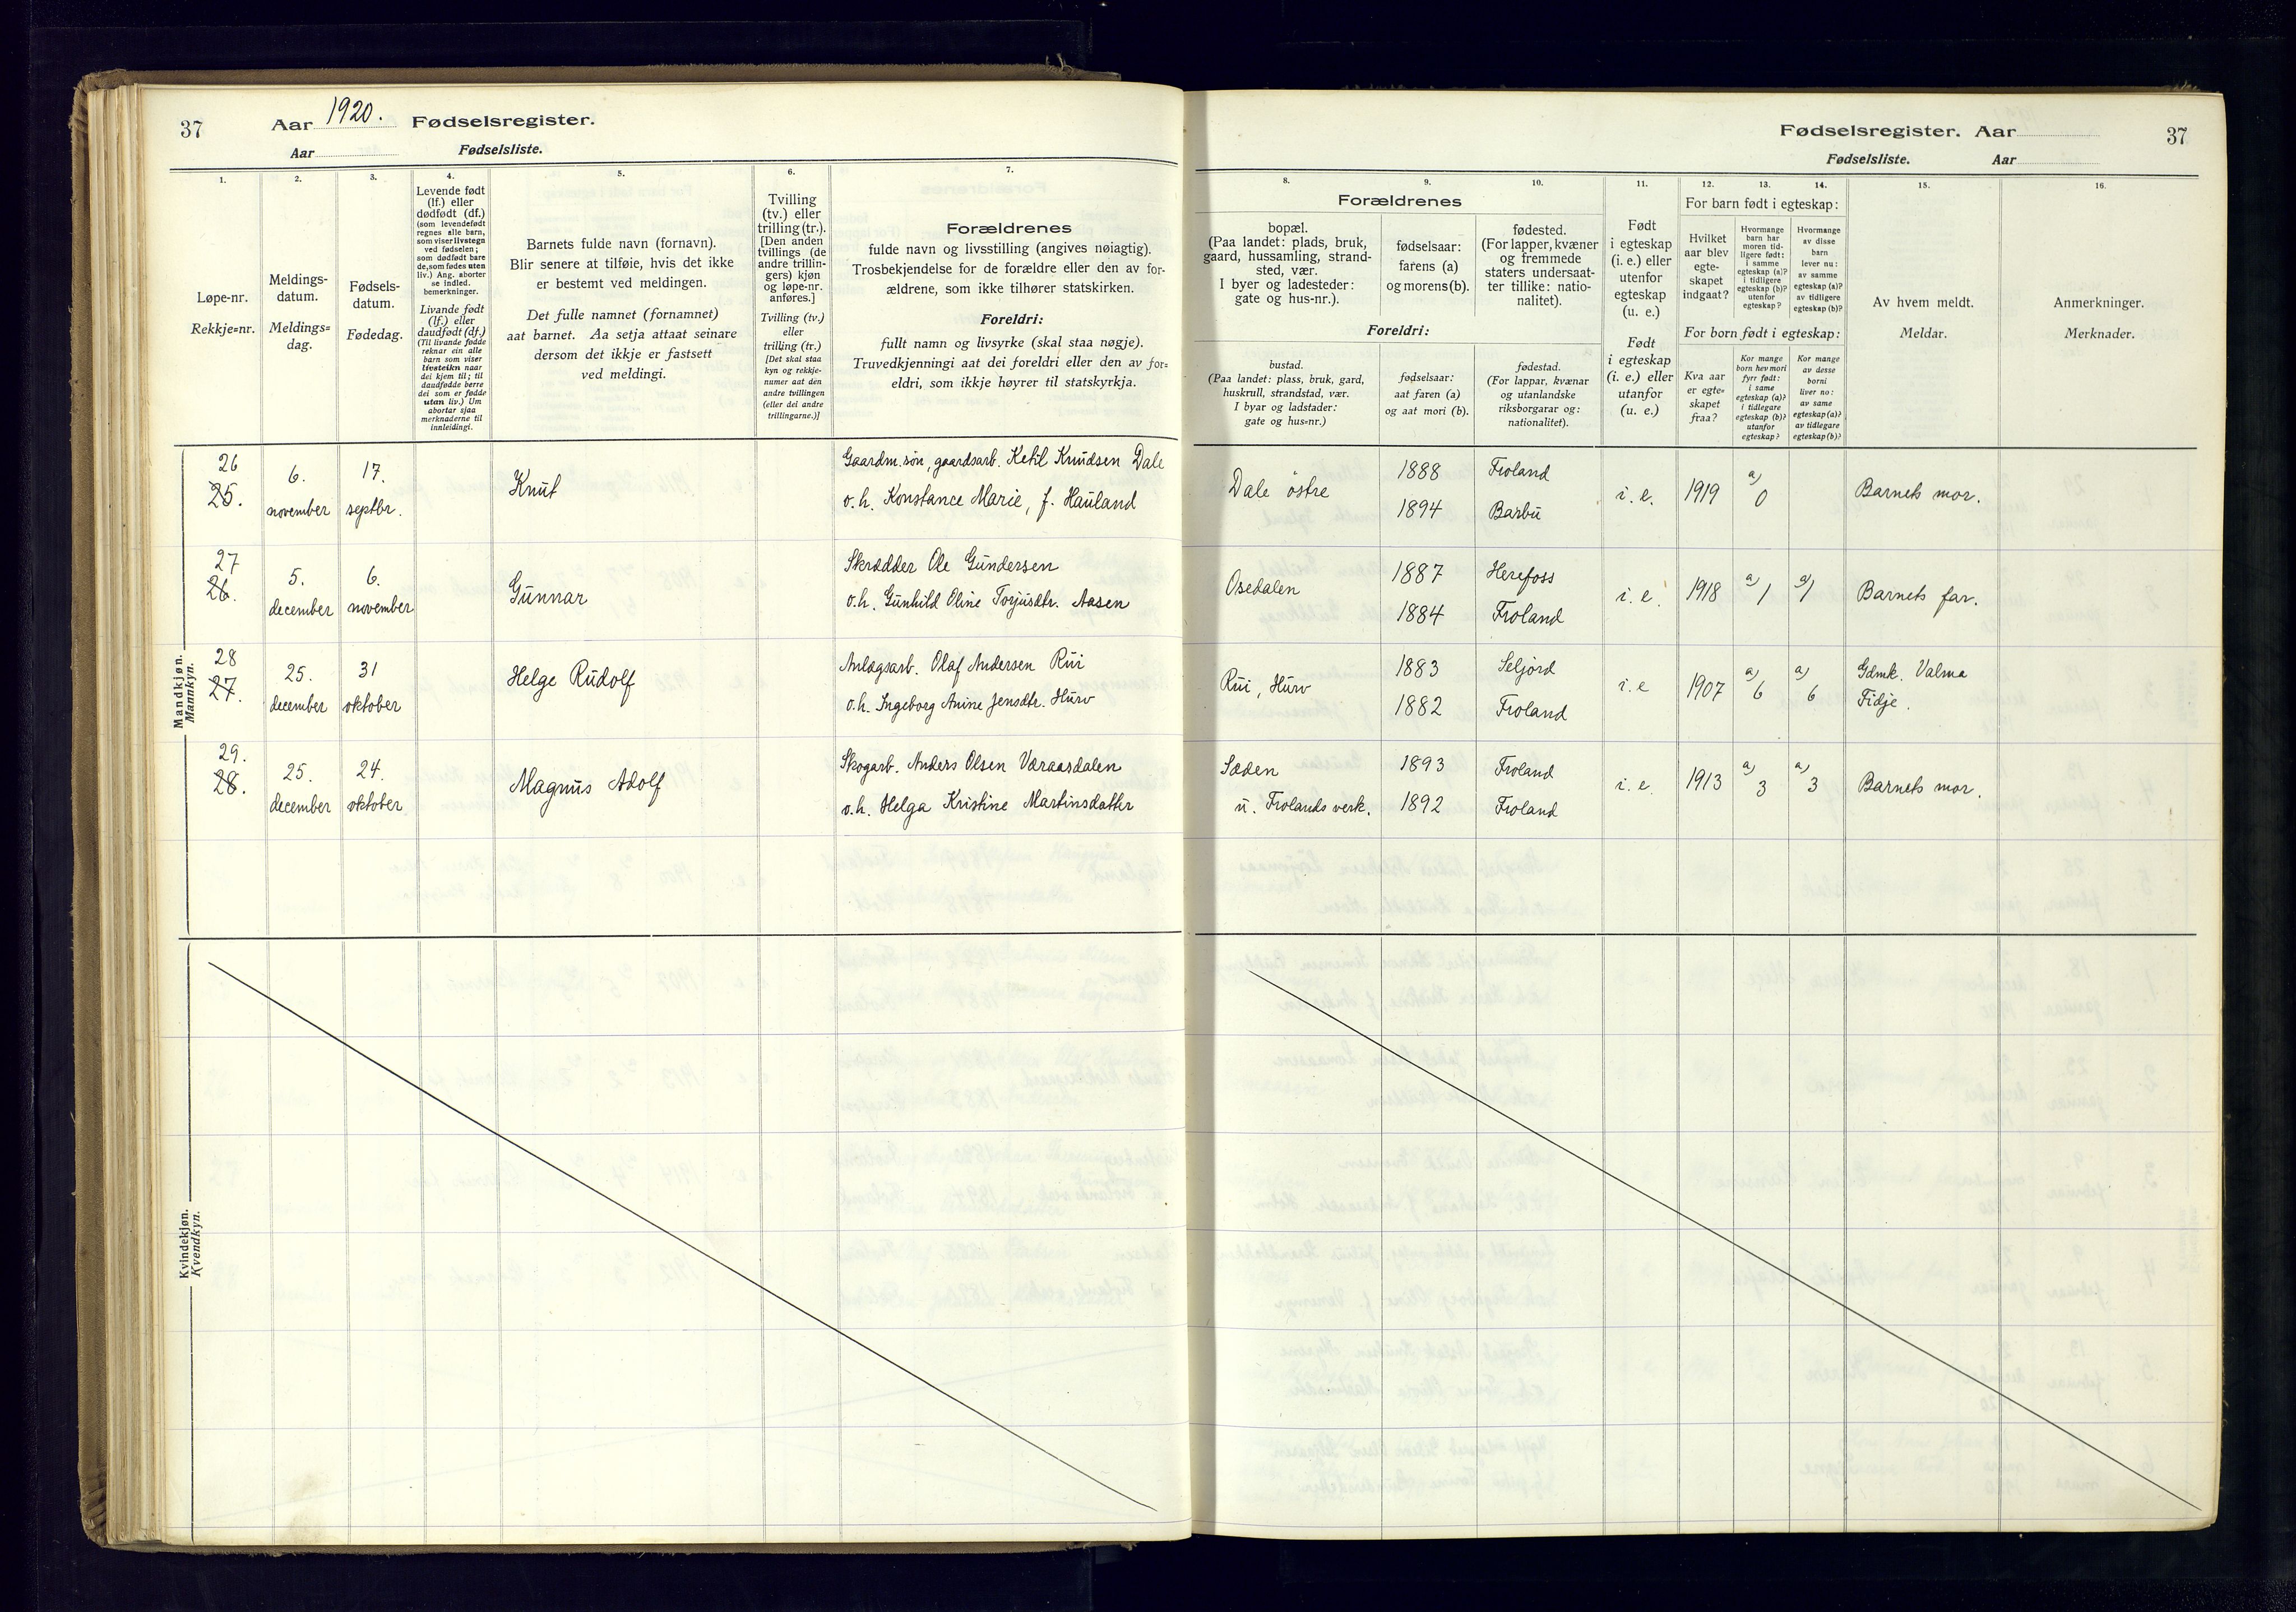 37
Aar 1920. Fødselsregister.
Aar Fødselsliste.
1.
2.
3.
4.
5.
6.
7.
Løpe-nr.
Rekkje=nr.
Meldings-
datum.
Meldings=
dag.
Fødsels-
datum.
Fødedag.
Levende født
(lf.) eller
dødfødt (df.)
(som levendefødt
regnes alle barn,
som viser livstegn
ved fødselen;
som dødfødt bare
de, som fødes uten
liv.) Ang. aborter
se indled.
bemerkninger.
Livande født
(lf.) eller
daudfødt (df.)
(Til livande fødde
reknar ein alle
barn som viser
livsteikn naar
dei kjem til; til
daudfødde berre
dei som er fødde
utan liv.) Um
abortar sjaa
merknaderne til
innleidingi.
Barnets fulde navn (fornavn).
Blir senere at tilføie, hvis det ikke
er bestemt ved meldingen.
Det fulle namnet (fornamnet)
aat barnet. Aa setja attaat seinare
dersom det ikkje er fastsett
ved meldingi.
Tvilling
(tv.) eller
trilling (tr.).
[Den anden
tvillings (de
andre trillin-
gers) kjøn
og løpe-nr.
anføres.]
Tvilling (tv.)
eller
trilling (tr.)
[Det skal staa
kyn og rekkje-
numer aat den
andre tvillingen
(eller dei andre
trillingarne.)]
Forældrenes
fulde navn og livsstilling (angives nøiagtig).
Trosbekjendelse for de forældre eller den av for-
ældrene, som ikke tilhører statskirken.
Foreldri:
fullt namn og livsyrke (skal staa nøgje).
Truvedkjenningi aat dei foreldri eller den av for=
eldri, som ikkje høyrer til statskyrkja.
Mandkjøn.
Mannkyn.
26
25.
6.
november
17.
septbr.
Knut
Gaardm.søn, gaardsarb. Ketil Knudsen Dale
o.h. Konstance Marie, f. Hauland
27
26.
5.
december
6.
november
Gunnar
Skrædder Ole Gundersen
o.h. Gunhild Oline Torjusdtr. Aasen
28
27.
25.
december
31
oktober
Helge Rudolf
Anlægsarb. Olaf Andersen Rui
o.h. Ingeborg Anine Jensdtr. Hurv
29.
28.
25.
december
24.
oktober
Magnus Adolf
Skogarb. Anders Olsen Væraasdalen
o.h. Helga Kristine Martinsdatter
Kvindekjøn.
Kvendkyn.
Fødselsregister. Aar
37
Fødselsliste. Aar
8.
9.
10.
11.
12.
13.
14.
15.
16.
Forældrenes
bopæl.
(Paa landet: plads, bruk,
gaard, hussamling, strand-
sted, vær.
I byer og ladesteder:
gate og hus-nr.).
fødselsaar:
farens (a)
og morens (b).
fødested.
(For lapper, kvæner
og fremmede
staters undersaat-
ter tillike: natio-
nalitet).
Foreldri:
bustad.
(Paa landet: plass, bruk, gard,
huskrull, strandstad, vær.
I byar og ladstader:
gate og hus=nr.)
fødselsaar:
aat faren (a)
og aat mori (b).
fødestad.
(For lappar, kvænar
og utanlandske
riksborgarar og:
nationalitet).
Født
i egteskap
(i. e.) eller
utenfor
egteskap
(u. e.)
Født
i egteskap
(i. e.) eller
utanfor
(u. e.)
For barn født i egteskap:
Hvilket
aar blev
egte-
skapet
indgaat?
Hvormange
barn har
moren tid-
ligere født:
i samme
egteskap (a)?
i tidligere
egteskap (b)?
utenfor
egteskap?
Hvormange
av disse
barn
lever nu:
av samme
egteskap (a)?
av tidligere
egteskap (b)?
For born født i egteskap:
Kva aar
er egte=
skapet
fraa?
Kor mange
born hev mori
fyrr født:
i same
egteskap (a)?
i tidlegare
egteskap (b)?
utanfor
egteskap?
Kor mange
av desse
borni
liver no:
av same
egteskap (a)?
av tidlegare
egteskap (b)?
Av hvem meldt.
Meldar.
Anmerkninger.
Merknader.
Dale östre
1888
1894
Froland
Barbu
i. e.
1919
a)
0
Barnets mor.
Osedalen
1887
1884
Herefoss
Froland
i. e.
1918
a) 1
a) 1
Barnets far.
Rui, Hurv
1883
1882
Seljord
Froland
i. e
1907
a) 6
a) 6
Gdmk. Valma
Fidje.
Sæden
u. Frolands verk.
1893
1892
Froland
Froland
i. e.
1913
a) 3
a) 3
Barnets mor.